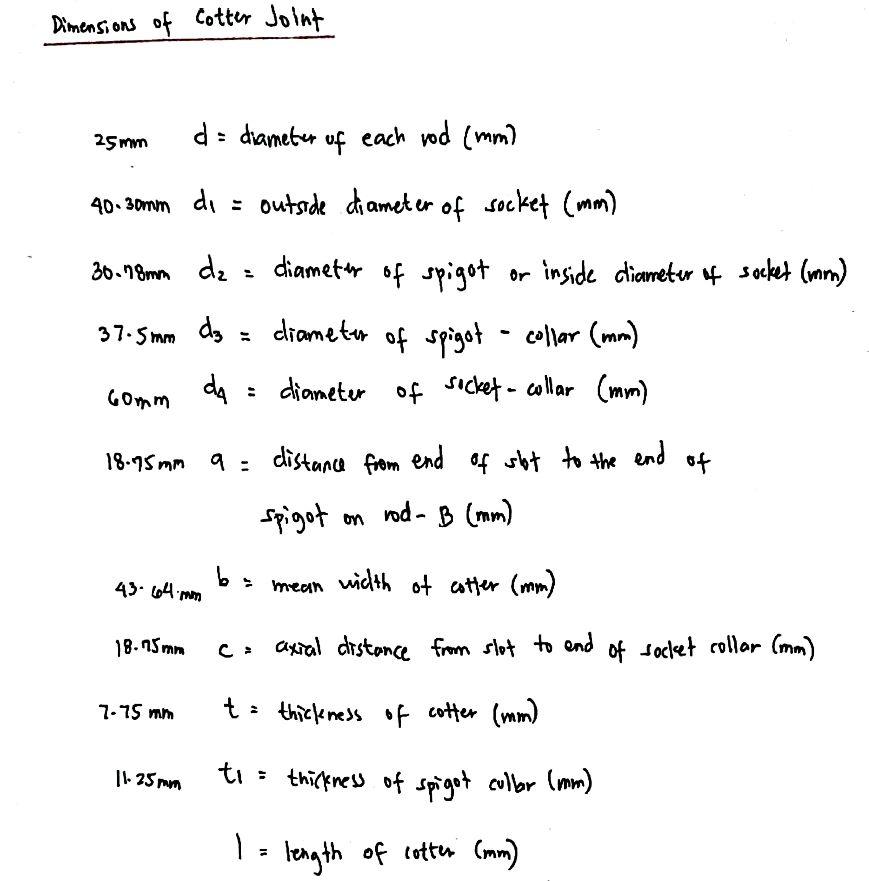 Dimensions of Cotter Joint
25mm d = diameter of each rod (mm)
40.30mm d1 = outside diameter of socket (mm)
30.78mm d2 = diameter of spigot or inside diameter of socket (mm)
37.5mm d3 = diameter of spigot - collar (mm)
60mm d4 = diameter of socket - collar (mm)
18.75mm a = distance from end of slot to the end of
spigot on rod - B (mm)
43.64.mm b = mean width of cotter (mm)
18.75mm c = axial distance from slot to end of socket collar (mm)
7.75 mm t = thickness of cotter (mm)
11.25mm t1 = thickness of spigot collar (mm)
l = length of cotter (mm)